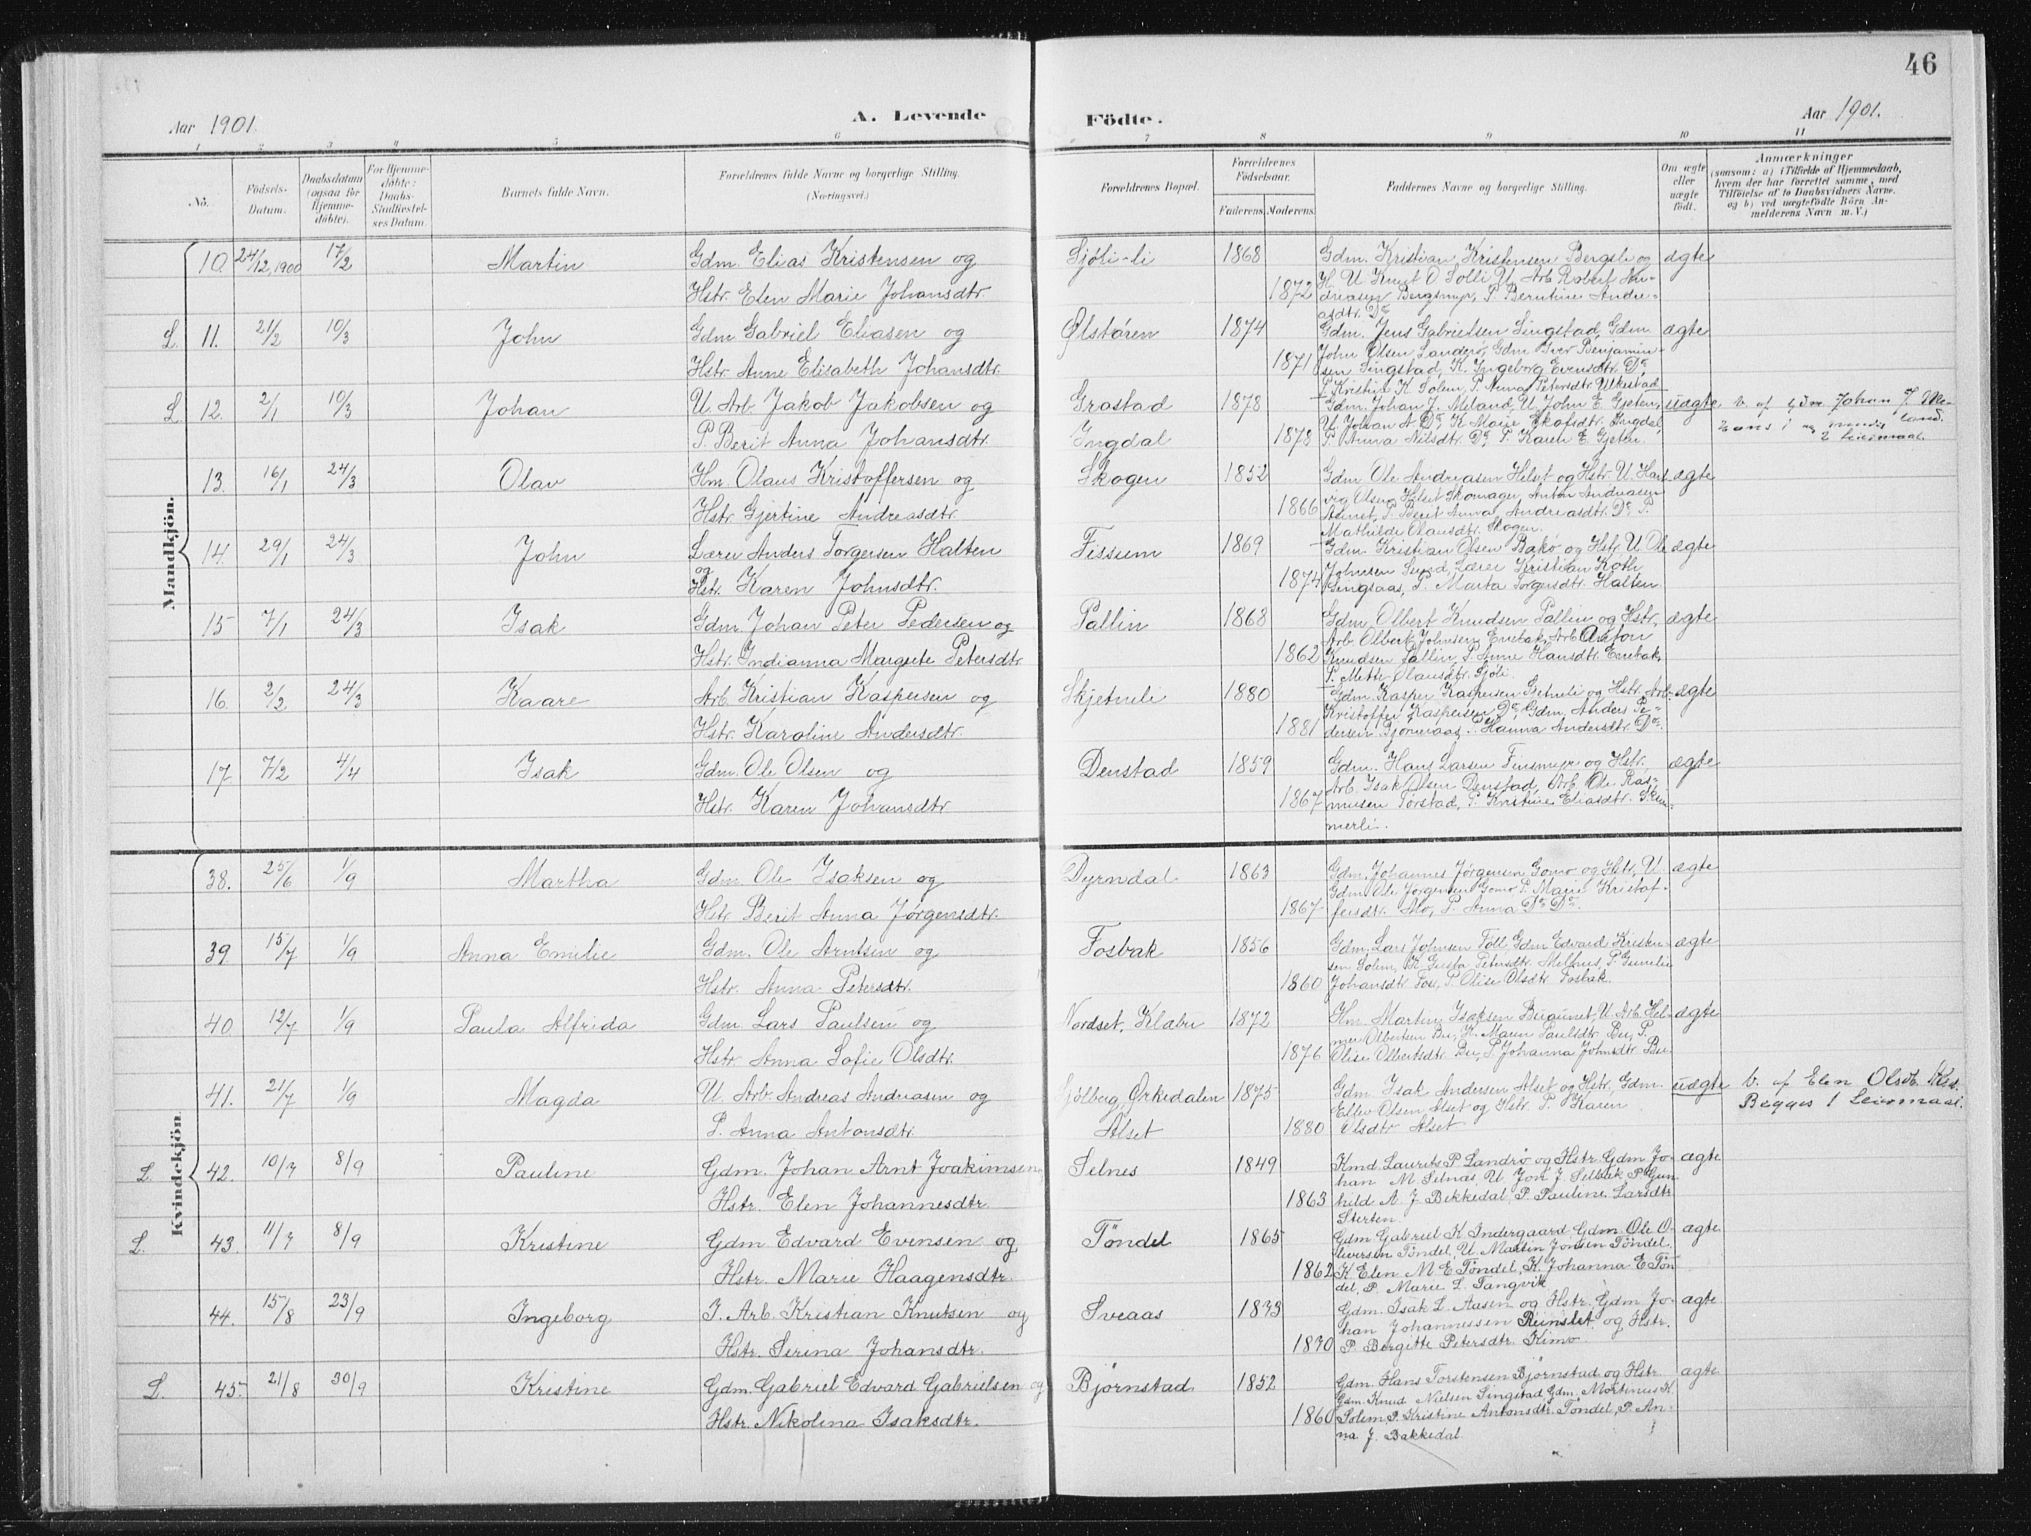 46
Aar 1901.
A. Levende
Födte.
Aar 1901.
1 2 3 4 5 6 7 8 9 10 11
No.
Födsels-Datum.
Daabsdatum (ogsaa for Hjemme-döbte).
For Hjemme-döbte: Daabs-Stadfæstel-ses Datum.
Barnets fulde Navn.
Forældrenes fulde Navne og borgerlige Stilling.
(Næringsvei.)
Forældrenes Bopæl.
Forældrenes Födselsaar.
Faderens. Moderens.
Faddernes Navne og borgerlige Stilling.
Om ægte eller uægte födt.
Anmærkninger
(saasom: a) i Tilfælde af Hjemmedaab,
hvem der har forrettet samme, med
Tilföielse af to Daabsvidners Navne.
og b) ved uægtefödte Börn An-
melderens Navn m. V.)
Mandkjön.
10. 24/12 1900 17/2 Martin Gdm. Elias Kristensen og Sjøli-li 1868 Gdm. Kristian Kristensen Bergsli og ægte
Hstr. Elen Marie Johansdtr. 1872 H. U. Knut O Solli, U. Arb. Robert An-
dreasen Bergsmyr, P. Berntine Andre-
asdtr. Do
L. 11. 21/2 10/3 John Gdm Gabriel Eliasen og Ølstøren 1874 Gdm. Jens Gabrielsen Singstad, Gdm. ægte
Hstr. Anne Elisabeth Johansdtr. 1871 John Olsen Landerø, Gdm Iver Benjamin-
sen Singstad, K. Ingeborg Evensdtr. Do,
P. Kristine K. Solem, P. Anna Petersdtr.
L. 12. 2/1 10/3 Johan U. Arb. Jakob Jakobsen og Grostad 1878 Gdm. Johan J. Meland, U. John E. Gjeten, uægte b. af Gdm Johan J. Me-
P. Berit Anna Johansdtr. Ingdal 1878 U. Johan A. Do, K. Marie Ingdal, land.
P. Anna Nilsdtr. Do P. Karen E. Gjeten. 2 Leiermaal.
13. 16/1 24/3 Olav Hm. Olaus Kristoffersen og Skogen 1852 Gdm. Ole Andreasen Helset og Hstr. U. ægte
Hstr. Gjertine Andreasdtr. 1866 Olsen Helset Skomager, Anton Andreasen
P. Berit Anna Andreasdtr. Do P.
Mathilde Olausdtr. Skogen.
14. 29/1 24/3 John Lærer Anders Torgersen Halten Fissum 1869 Gdm. Kristian Olsen Bakø og Hstr. U. Ole ægte
og
Hstr. Karen Johnsdtr. 1874 Johnsen Lærer Kristian Koth
Singsaas, P. Marta Torgersdtr. Halten
15 7/1 24/3 Isak Gdm. Johan Peter Pedersen og Pallin 1868 Gdm. Olbert Knudsen Pallin og Hstr, ægte
Hstr. Indianna Margrete Petersdtr 1862 Arb. Olbert Johnsen Enebak, Arb. Anton
Knudsen Pallin, P. Anne Hansdtr. Enebak,
P. Mette Olausdtr. Sjøli.
16. 2/2 24/3 Kaare Arb. Kristian Kaspersen og Skjetneli 1880 Gdm. Kasper Kaspersen og Hstr. Arb. ægte
Hstr. Karoline Andersdtr. 1881 Kristoffer Kaspersen Do, Gdm. Anders Pe-
dersen Hanna Andersdtr. Do.
17. 7/2 4/4 Isak Gdm. Ole Olsen og Denstad 1859 Gdm. Hans Larsen Finsmyr og Hstr. ægte
Hstr. Karen Johansdtr 1867 Arb. Isak Olsen Denstad, Arb. Ole Ras-
musen Tørstad, P. Kristine Eliasdtr.
merli.
Kvindekjön
38. 25/6 1/9 Martha Gdm. Ole Isaksen og Dyrndal 1863 Gdm. Johannes Jørgensen Gomo og Hstr, U. ægte
Hstr. Berit Anna Jørgensdtr. 1867 Gdm Ole Jørgensen Gomo P. Marie Kristof-
fersdtr. Mo, P. Anna Do Do.
39. 15/7 1/9 Anna Emilie Gdm. Ole Arntsen og Fosbak 1856 Gdm. Lars Johnsen Foll, Gdm Edvard Kristen- ægte
Hstr. Anna Petersdtr. 1860 sen Solem, K. Petersdtr. Melhus, P. Gunelie
Johansdtr Fos, P. Olise Olsdtr Fosbak.
40. 12/7 1/9 Paula Alfrida Gdm. Lars Paulsen og Nordset, Klæbu 1872 Hm. Martin Isaksen Bergunet, U. Arb. Hel- ægte
Hstr. Anna Sofie Olsdtr. 1876 mer Olbertsen Bu, K. Maren Paulsdtr. Bu, P.
Olise Olbertsdtr. Bu, P. Johanna Johnsdtr. Bu
41. 21/7 1/9 Magda U. Arb. Andreas Andreasen og Sjølberg, Ørkedalen 1875 Gdm. Isak Andersen Alset og Hstr, Gdm. uægte b. af Elen Olsdtr.
P. Anna Antonsdtr. Alset 1880 Ellev Olsen Alset og Hstr. P. Karen Begges 1 Leiermaal.
Olsdtr Alset
L. 42. 10/7 8/9 Pauline Gdm. Johan Arnt Joakimsen Selnes 1849 Kmd. Laurits P Landrø og Hstr. Gdm Jo- ægte
Hstr. Elen Johannesdtr. 1863 han M Selnæs, U. Jon J. Selbæk, P. Gun
hild A. J. Bekkedal, P. Pauline Larsdtr
Sterten.
L. 43. 11/7 8/9 Kristine Gdm Edvard Evensen og Töndel 1865 Gdm Gabriel K Indergaard, Gdm. Ole O- ægte
Hstr. Marie Haagensdtr. 1862 liversen Töndel, U. Martin Jonsen Töndel.
K Elen M E Töndel, K. Johanna E Tön
del, P. Marie L. Tangvik
44. 15/8 23/9 Ingeborg I. Arb. Kristian Knutsen og Sveaas 1833 Gdm. Isak L. Aasen og Hstr. Gdm Jo- ægte
Hstr. Serina Johansdtr. 1830 han Johannessen Reinslet og Hstr.
P. Bergitte Petersdtr. Kimo
L. 45. 21/8 30/9 Kristine Gdm. Gabriel Edvard Gabrielsen og Bjørnstad 1852 Gdm. Hans Torstensen Bjørnstad og Hstr ægte
Hstr. Nikolina Isaksdtr. 1860 Gdm. Knud Nielsen Singstad, Gdm. Mortinus K.
Solem, P. Kristine Antonsdtr. Töndel, P. An-
na J. Bakkedal.